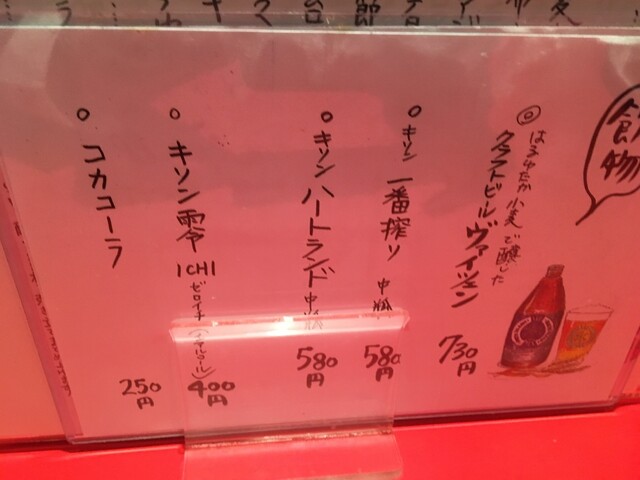 飲物
◎ はるゆたか小麦で醸した
クラフトビール ヴァイツェン 730円
○ キリン 一番搾り 中瓶 580円
○ キリン ハートランド 中瓶 580円
○ キリン零ICHI ゼロイチ(ノンアルコール) 400円
○ コカコーラ 250円